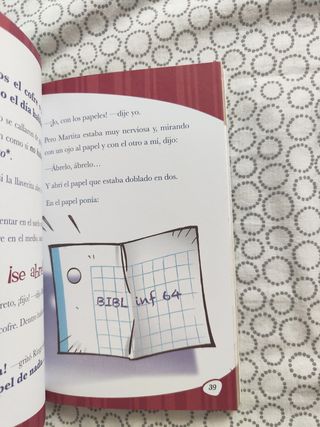 s el cofre,
o el día
se callaron
como si
o*.
la llavecita
entar en el
e en el medio
¡se ab
reto, ¡fijo!
cofre. Dentro
a! —gritó
pel de nada
—¡Jo, con los papeles! —dije yo.
Pero Martita estaba muy nerviosa y, mirando
con un ojo al papel y con el otro a mí, dijo:
—Ábrelo, ábrelo…
Y abrí el papel que estaba doblado en dos.
En el papel ponía:
BIBL inf 64
39